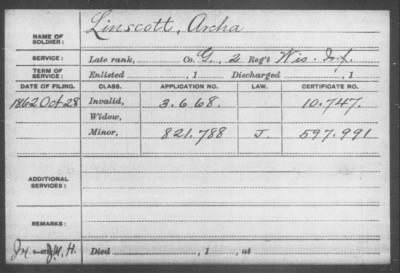 NAME OF SOLDIER: Linscott, Archa
SERVICE: Late rank, Co. G., 2 Reg't Wis. Inf.
TERM OF SERVICE: Enlisted , 1 Discharged , 1
DATE OF FILING. CLASS. APPLICATION NO. LAW. CERTIFICATE NO.
1862 Oct 28 Invalid, 3.668. 10.747.
Widow,
Minor, 821.788 J. 597.991
ADDITIONAL SERVICES:
REMARKS:
Died , 1 , at